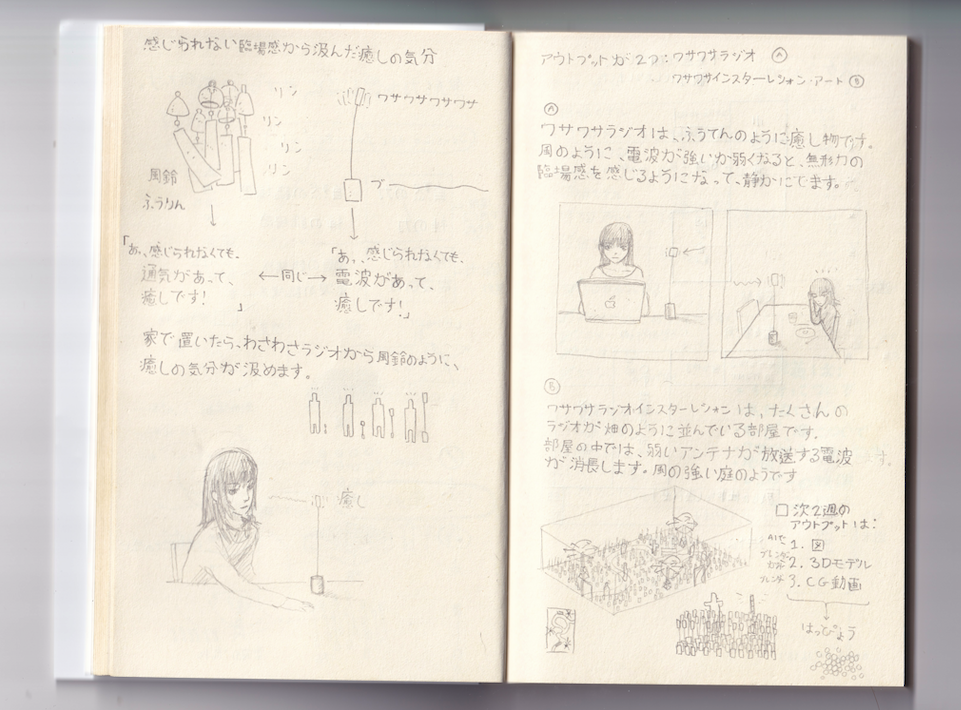 感じられない臨場感から汲んだ癒しの気分
リン
リン
リン
リン
周鈴
ふうりん
ワサワサワサワサ
ブ
「あ、、感じられなくても、
通気があって、
癒しです!」
←同じ→
「あ、、感じられなくても、
電波があって、
癒しです!」
家で置いたら、わさわさラジオから周鈴のように、
癒しの気分が汲めます。
癒し
アウトプットが2つ:ワサワサラジオ Ⓐ
ワサワサインスターレション・アート Ⓑ
Ⓐ
ワサワサラジオは、ふうてんのように癒し物です。
周のように、電波が強いか弱くなると、無形力の
臨場感を感じるようになって、静かにでます。
Ⓑ
ワサワサラジオインスターレションは、たくさんの
ラジオが畑のように並んでいる部屋です。
部屋の中では、弱いアンテナが放送する電波
が消長します。周の強い庭のようです
□次2週の
アウトプットは:
AIで
1. 図
2. 3Dモデル
3. CG動画
はっぴょう